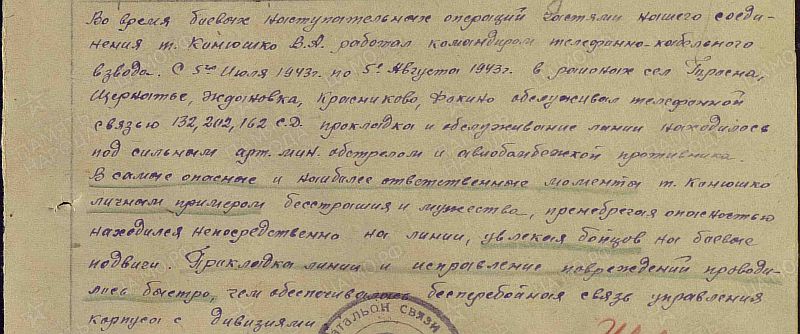 Во время боевых наступательных операций частями нашего соеди-
нения т. Канюшко В.А. работал командиром телефонно-кабельного
взвода. С 5го Июля 1943г. по 5е Августа 1943г. в районах сел Тросна,
Щернатье, Ждановка, Красниково, Фокино обслуживал телефонной
связью 132, 202, 162 с.д. прокладка и обслуживание линии находилось
под сильным арт. мин. обстрелом и авиобамбежкой противника.
В самые опасные и наиболее ответственные моменты т. Канюшко
личным примером бесстрашия и мужества, пренебрегая опасностью
находился непосредственно на линии, увлекая бойцов на боевые
подвиги. Прикладка линии и исправление повреждений проводи-
лись быстро, чем обеспечивалась бесперебойная связь управления
корпуса с дивизиями
тальон связи